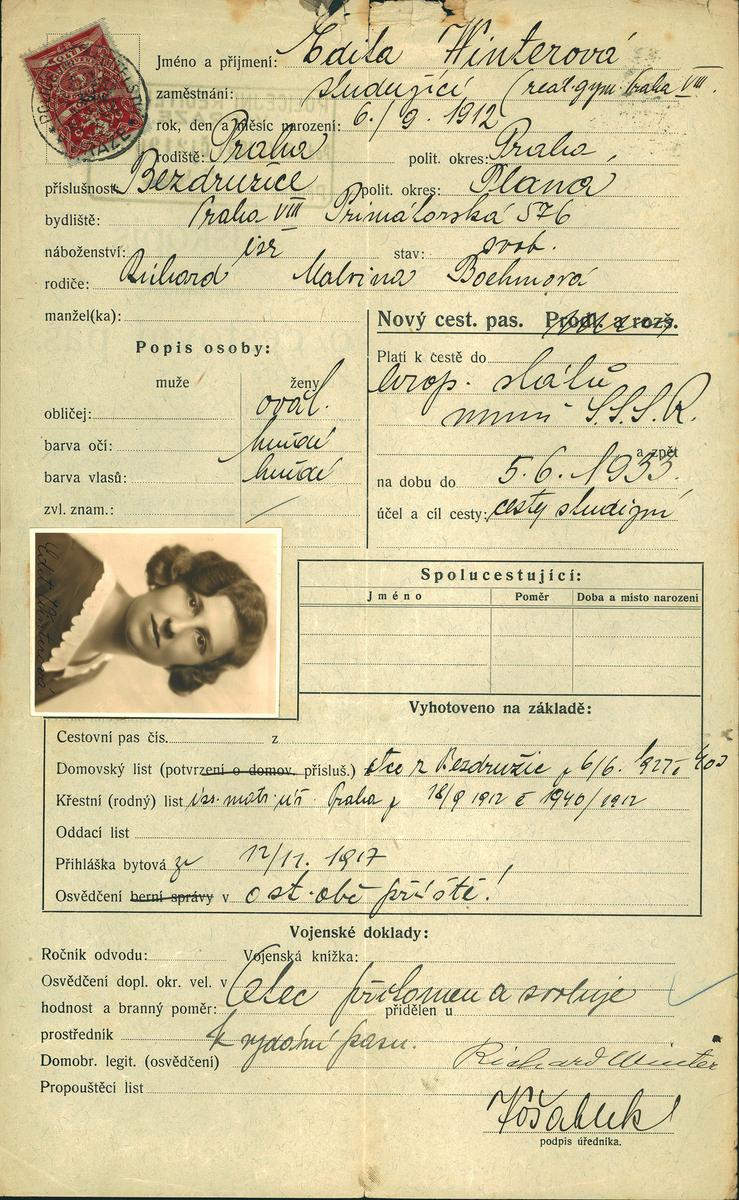 Jméno a příjmení: Edita Winterová
zaměstnání: studující (real. gym. Praha VIII.
rok, den a měsíc narození: 6./9. 1912
rodiště: Praha polit. okres: Praha
příslušnost: Bezdružice polit. okres: Planá
bydliště: Praha VIII Primátorská 576
náboženství: isr stav: svob.
rodiče: Richard Malvina Boehmová
manžel(ka):
Popis osoby:
muže ženy
obličej: ovál.
barva očí: hnědé
barva vlasů: hnědé
zvl. znam.:
Nový cest. pas. Prodl. a rozš.
Platí k cestě do
evrop. států
mimo S.S.S.R.
a zpět
na dobu do 5.6.1933.
účel a cíl cesty: cesty studijní
Edita Winterová
Spolucestující:
Jméno Poměr Doba a místo narození
Vyhotoveno na základě:
Cestovní pas čís. z
Domovský list (potvrzení o domov. přísluš.) otce z Bezdružic 6/6. 1927 č 403
Křestní (rodný) list isr. matr. úř. Praha 18/9 1912 č 1940/1912
Oddací list
Přihláška bytová ze 12/11. 1917
Osvědčení berní správy v ost. obě příště!
Vojenské doklady:
Ročník odvodu: Vojenská knížka:
Osvědčení dopl. okr. vel. v
Otec přítomen a svoluje
hodnost a branný poměr: přidělen u
prostředník k vydání pasu.
Domobr. legit. (osvědčení) Richard Winter
Propouštěcí list
podpis úředníka.